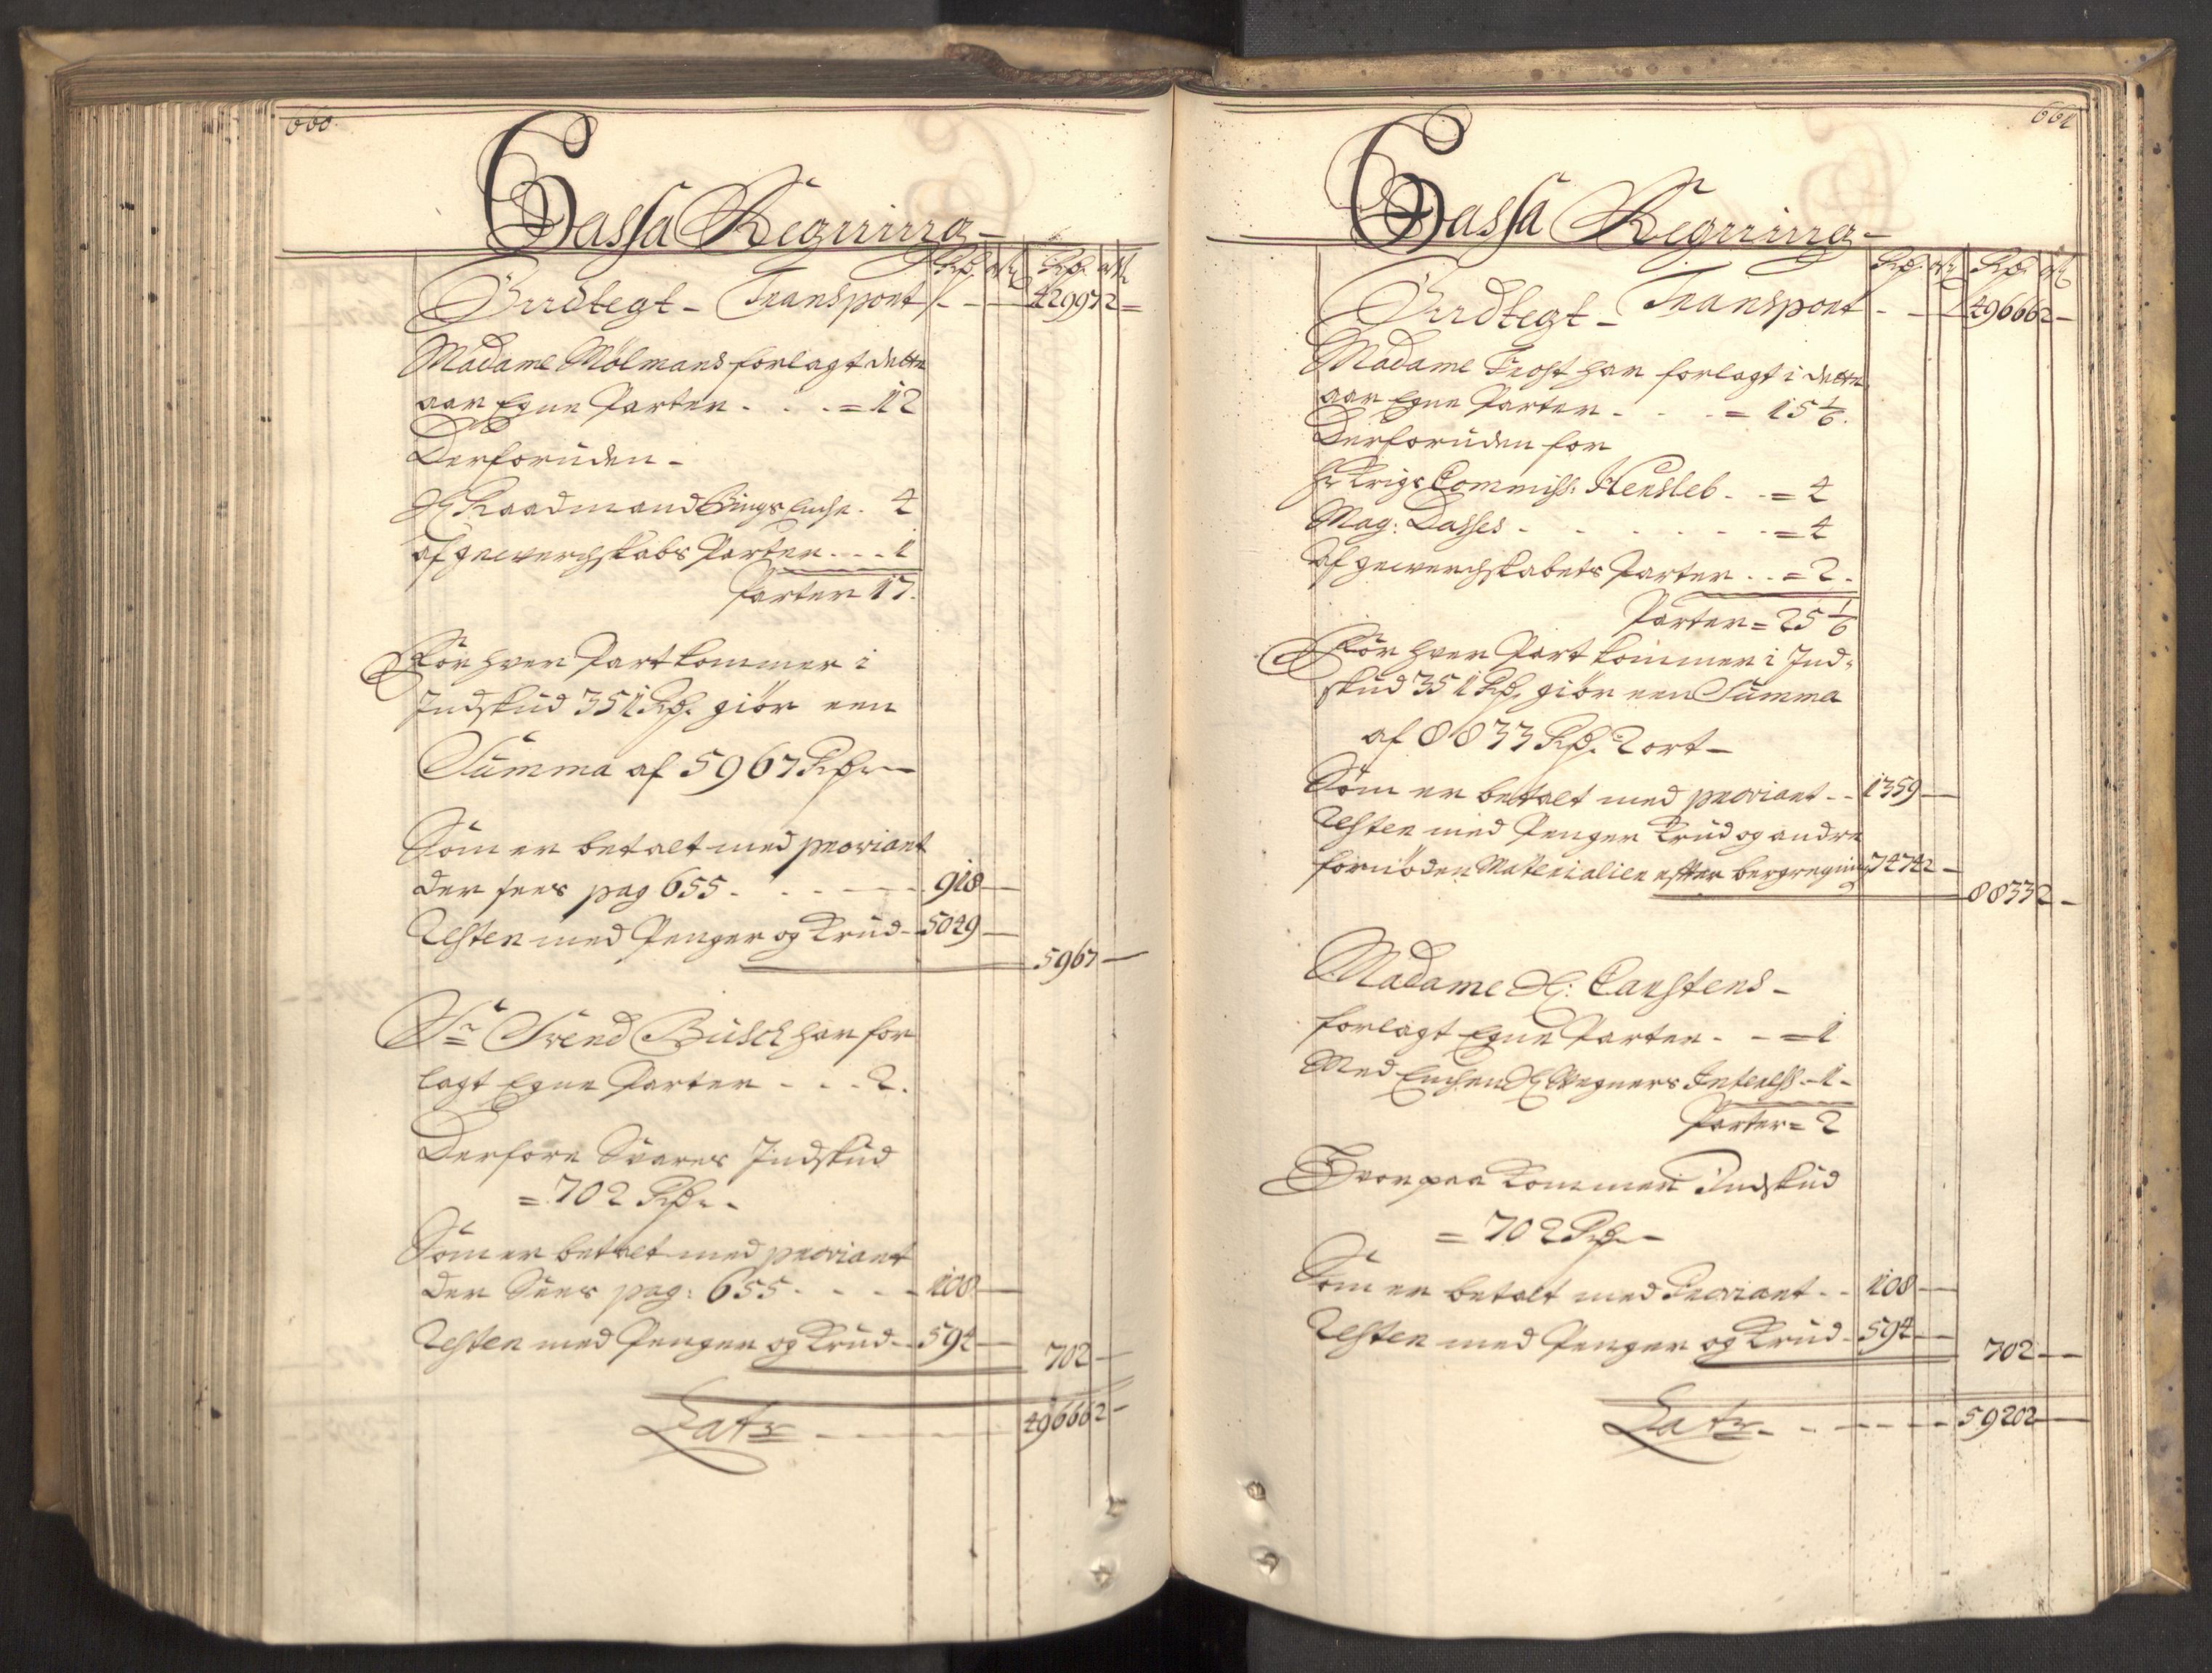 660.
Cassa Regning
Rdr. ort Rdr. ort
Indtegt - Transport - - - 42997 2 -
Madame Mölmans forlagt dette
aar Egne Parter . . . = 12
Derforuden -
H. Raadmand Bings Enche . 4
af gewerchskabs Parter . . . 1
Parter 17.
For hver Part kommer i
Indskud 351 Rdr. giör een
Summa af 5967 Rdr. -
Som er betalt med proviant
der sees pag 655 . . . - 918 -
Resten med Penger og Krud - 5049 -
5967 -
Sr. Svend Busch har for
lagt Egne Parter - . . 2.
Derfore Svares Indskud
= 702 Rdr. -
Som er betalt med proviant
der Sees pag: 655 . . . - 108 -
Resten med Penger og Krud - 594 -
702 -
Latr - - - - 49666 2 -
661
Cassa Regning
Rdr. ort Rdr. ort
Indtegt - Transport - - - 49666 2 -
Madame Frost har forlagt i dette
aar Egne Parter . . . = 15 1/6.
Derforuden for
Hr. Krigs Commiss: Hersleb . . = 4
Mag: Dasses - . . . . . = 4
af gewerchskabets Parter . . = 2.
Parter = 25 1/6
For hver Part kommer i Ind-
skud 351 Rdr. giör een Summa
af 8833 Rdr. 2 ort -
Som er betalt med proviant . . 1359 -
Resten med Penger Krud og andre
fornöden Materialier efter beregning 7474 2 -
8833 2 -
Madame H: Carstens -
forlagt Egne Parter . - = 1
Med Enchen H. Wegners Interess - 1 -
Parter = 2
Hvorpaa kommer Indskud
= 702 Rdr. -
Som er betalt med Proviant . . 108 -
Resten med Penger og Krud - 594 -
702 - -
Latr - . - - - 59202 -